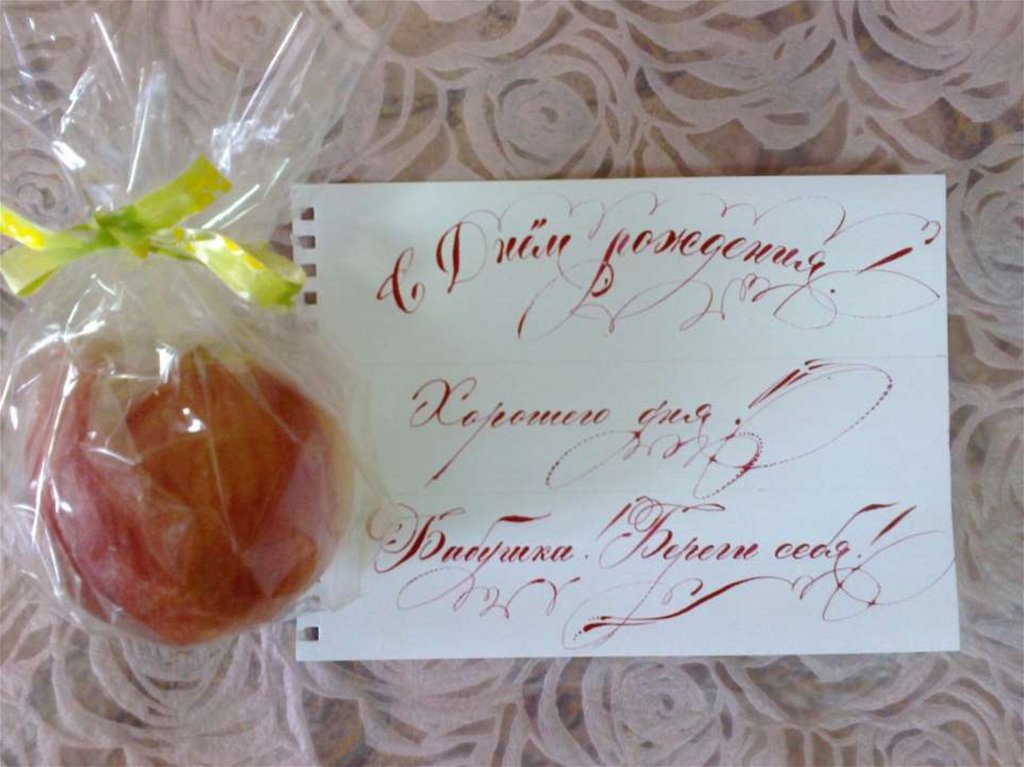 С Днём рождения!
Хорошего дня!
Бабушка! Береги себя!